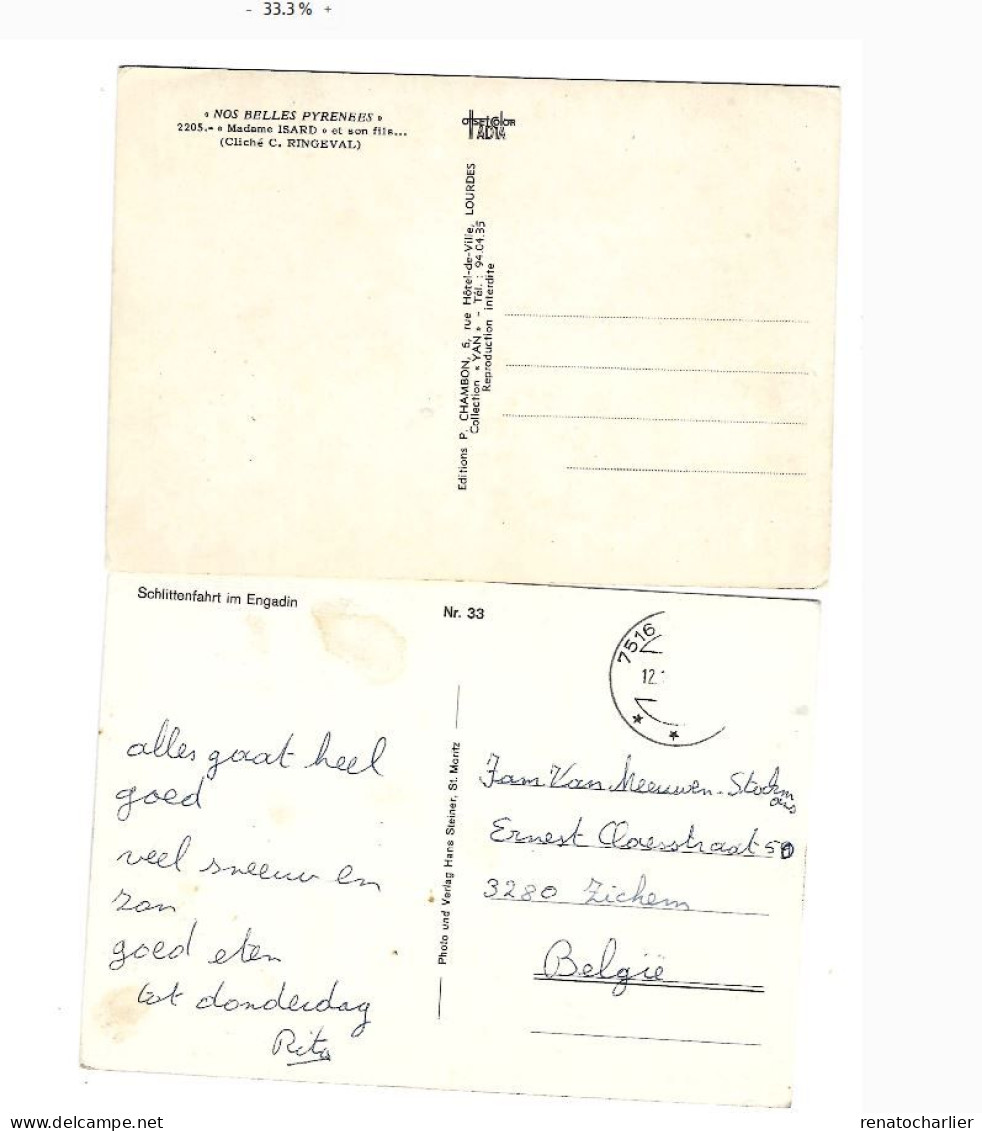 - 33.3 % +
« NOS BELLES PYRENEES »
2205.- « Madame ISARD » et son fils...
(Cliché C. RINGEVAL)
OFFSET COLOR
IADLA
Editions P. CHAMBON, 6, rue Hôtel-de-Ville, LOURDES
Collection « YAN » - Tél. : 94.04.35
Reproduction interdite
Schlittenfahrt im Engadin
Nr. 33
7516
12.
alles gaat heel
goed
veel sneeuw en
zon
goed eten
tot donderdag
Rita
Photo und Verlag Hans Steiner, St. Moritz
Fam. Van Meeuwen-Stockm
ans
Ernest Claesstraat 50
3280 Zichem
België
renatocharlier